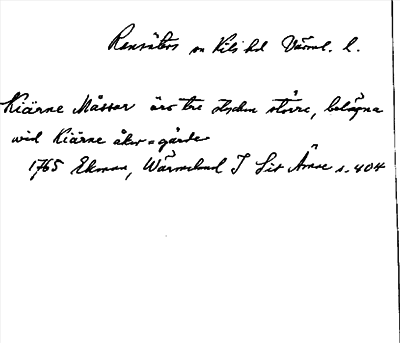 Ransäters sn Kils hd Värml. l.
Kiärne Måssar äro tre stycken större, belägna
wid Kiärne åker=gärde
1765 Ekman, Wärmeland I Sit Ämne s. 404